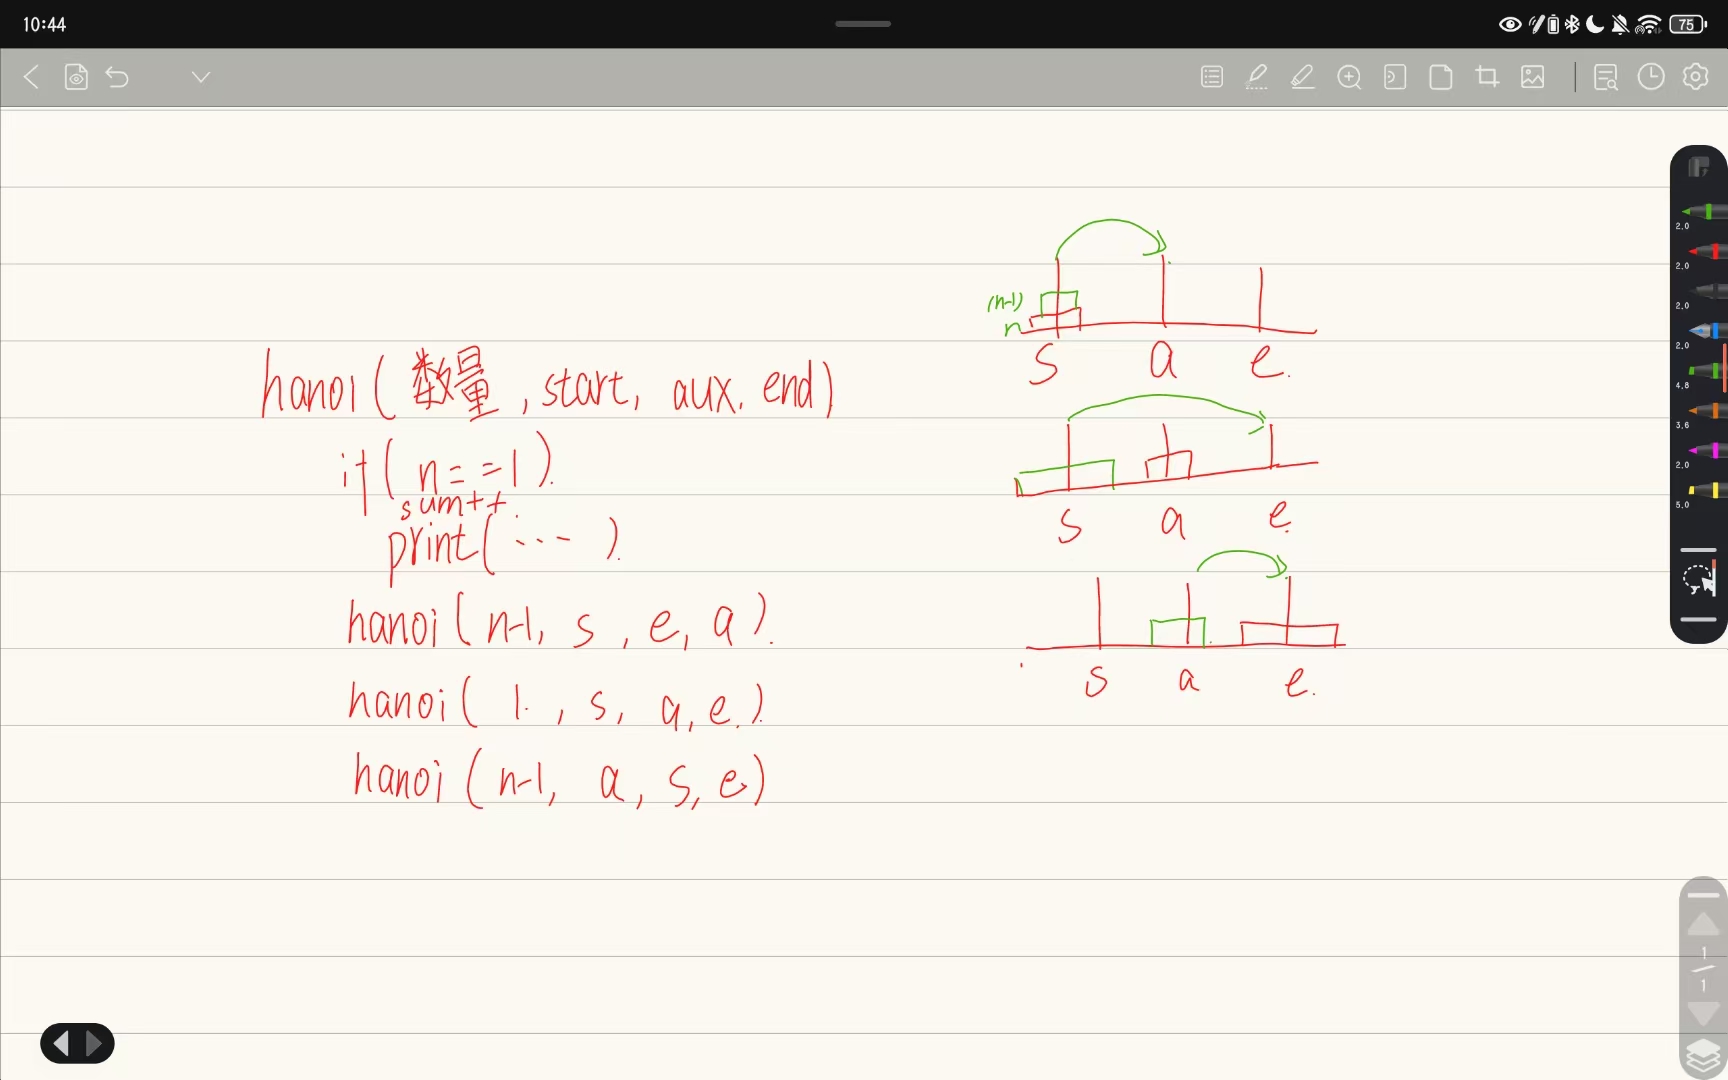 10:44
75
hanoi( 数量 , start, aux, end)
if( n==1).
sum++
print( ... ).
hanoi( n-1, s , e, a ).
hanoi( 1. , s, a, e. ).
hanoi ( n-1, a, s, e)
(n-1)
n
s a e.
s a e.
s a e.
2.0
2.0
2.0
2.0
4.8
3.6
2.0
5.0
1
1